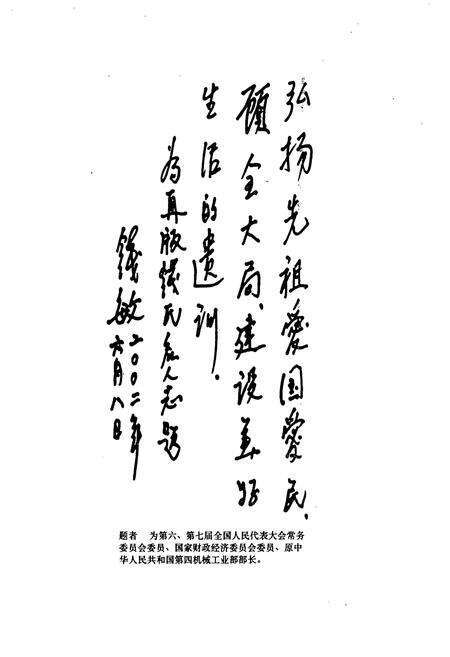 弘扬先祖爱国爱民、
顾全大局、建设美好
生活的遗训.
为再版钱氏名人志题
钱敏二〇〇二年
六月八日
题者 为第六、第七届全国人民代表大会常务
委员会委员、国家财政经济委员会委员、原中
华人民共和国第四机械工业部部长。